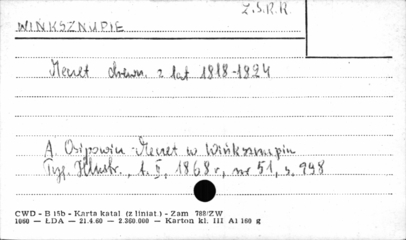 Z.S.R.R.
WINKSZNUPIE
Meczet drewn. z lat 1818-1824
A. Osipowicz - Meczet w Winksznupiu
Tyg. Illustr., t. II, 1868 r., nr 51, s. 948
CWD - B 15b - Karta katal (z liniat.) - Zam 788/ZW
1060 — ŁDA — 21.4.60 — 2.360.000 — Karton kl. III A1 160 g